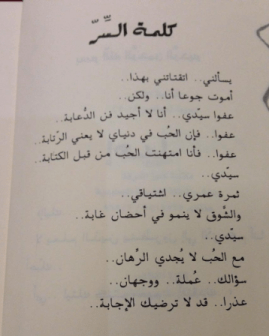 كلمة السّرّ
يسألني.. اتقتاتني بهذا..
أموت جوعا أنا.. ولكن..
عفوا سيّدي.. أنا لا أجيد فن الدُّعابة..
عفوا.. فإن الحُب في دنياي لا يعني الرّتابة..
عفوا.. فأنا امتهنت الحُب من قبل الكتابة..
سيّدي..
ثمرة عمري.. لشتياقي..
والشّوق لا ينمو في أحضان غابة..
سيّدي..
مع الحُب لا يُجدي الرّهان..
سؤالك.. عُملة.. ووجهان..
عذرا.. قد لا ترضيك الإجابة..